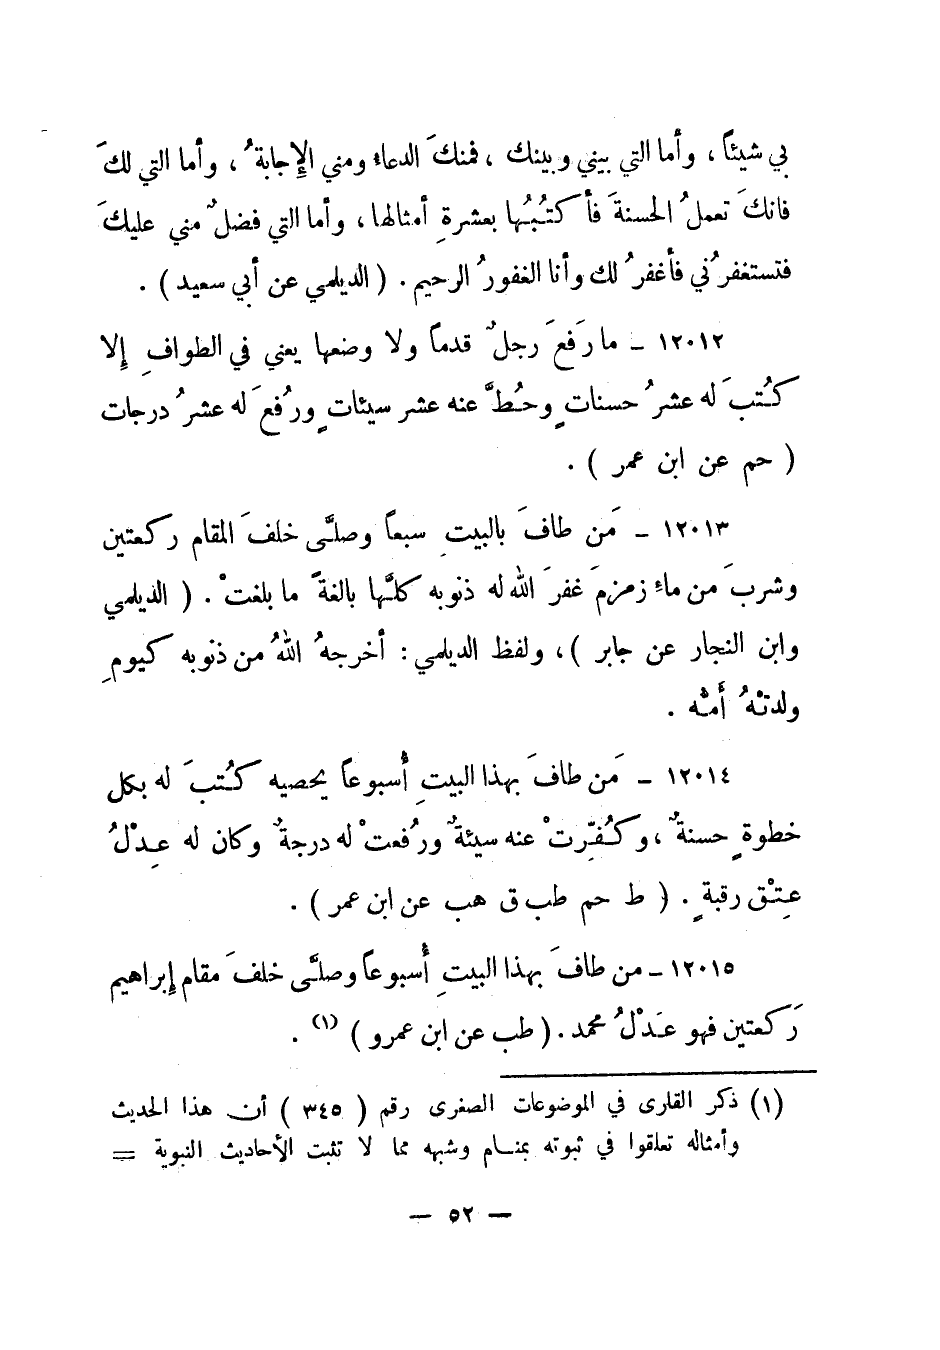 بي شيئاً ، وأما التي بيني وبينك ، فمنكَ الدعاء ومني الإِجابةُ ، وأما التي لكَ
فانكَ تعملُ الحسنةَ فأكتُبُها بعشرةِ أمثالها ، وأما التي فضلٌ مني عليكَ
فتستغفرُني فأغفرُ لك وأنا الغفورُ الرحيم . ( الديلمي عن أبي سعيد ) .
١٢٠١٢ ـ ما رَفعَ رجلٌ قدماً ولا وضعها يعني في الطوافِ إِلا
كُتبَ له عشرُ حسنات وحُطَّ عنه عشر سيئات ورُفعَ له عشرُ درجات
( حم عن ابن عمر ) .
١٢٠١٣ ـ مَن طافَ بالبيتِ سبعاً وصلَّى خلفَ المقام ركعتين
وشربَ من ماءِ زمزمَ غفرَ الله له ذنوبه كلَّها بالغةً ما بلغتْ . ( الديلمي
وابن النجار عن جابر ) ، ولفظ الديلمي : أخرجهُ اللهُ من ذنوبه كيومِ
ولدتْهُ أُمُّه .
١٢٠١٤ ـ مَن طافَ بهذا البيتِ أُسبوعاً يحصيه كُتبَ له بكل
خطوةٍ حسنةٌ ، وكُفِّرتْ عنه سيئةٌ ورُفعتْ له درجةٌ وكان له عِدْلُ
عِتْق رقبةٍ . ( ط حم طب ق هب عن ابن عمر ) .
١٢٠١٥ ـ من طافَ بهذا البيتِ أُسبوعاً وصلَّى خلفَ مقام إِبراهيم
رَكعتين فهو عَدْلُ محمد . ( طب عن ابن عمرو ) (١) .
(١) ذكر القارى في الموضوعات الصغرى رقم ( ٣٤٥ ) أن هذا الحديث
وأمثاله تعلقوا في ثبوته بمنام وشبهه مما لا تثبت الأحاديث النبوية =
— ٥٢ —